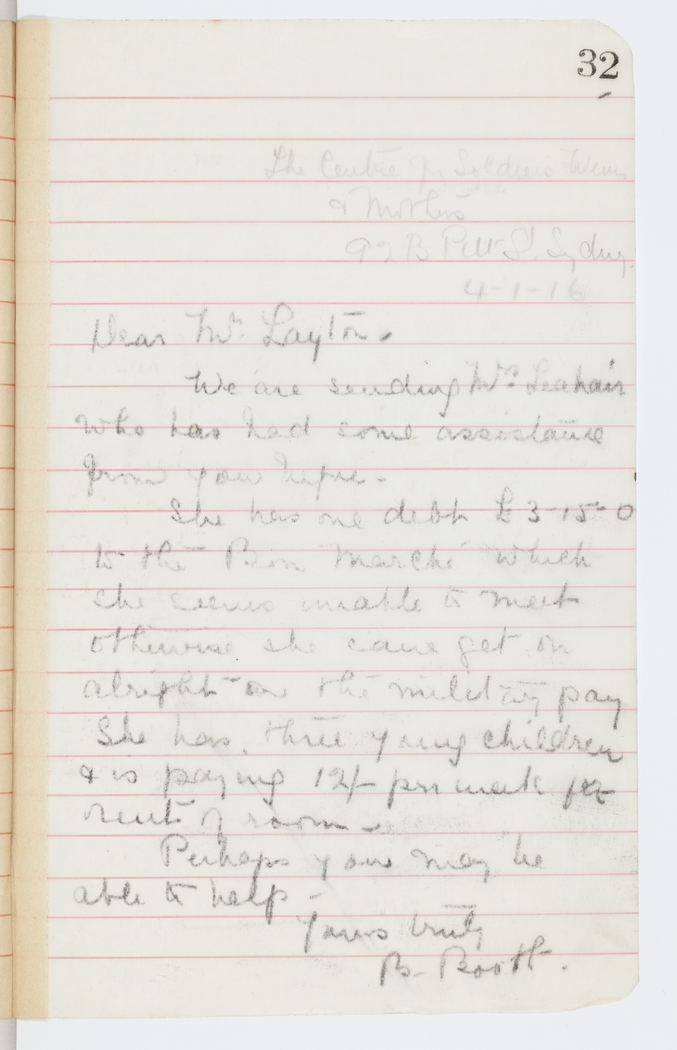 32
The Centre for Soldiers Wives
& Mothers
92B Pitt St. Sydney
4-1-16
Dear Mr. Layton.
We are sending Mrs
who has had some assistance
from you before.
She has one debt £3-15-0
to the Bon Marche which
she seems unable to meet
otherwise she can get on
alright on the military pay
She has, three young children
& is paying 12/- per week for
rent of room.
Perhaps you may be
able to help -
Yours truly
B. Booth.